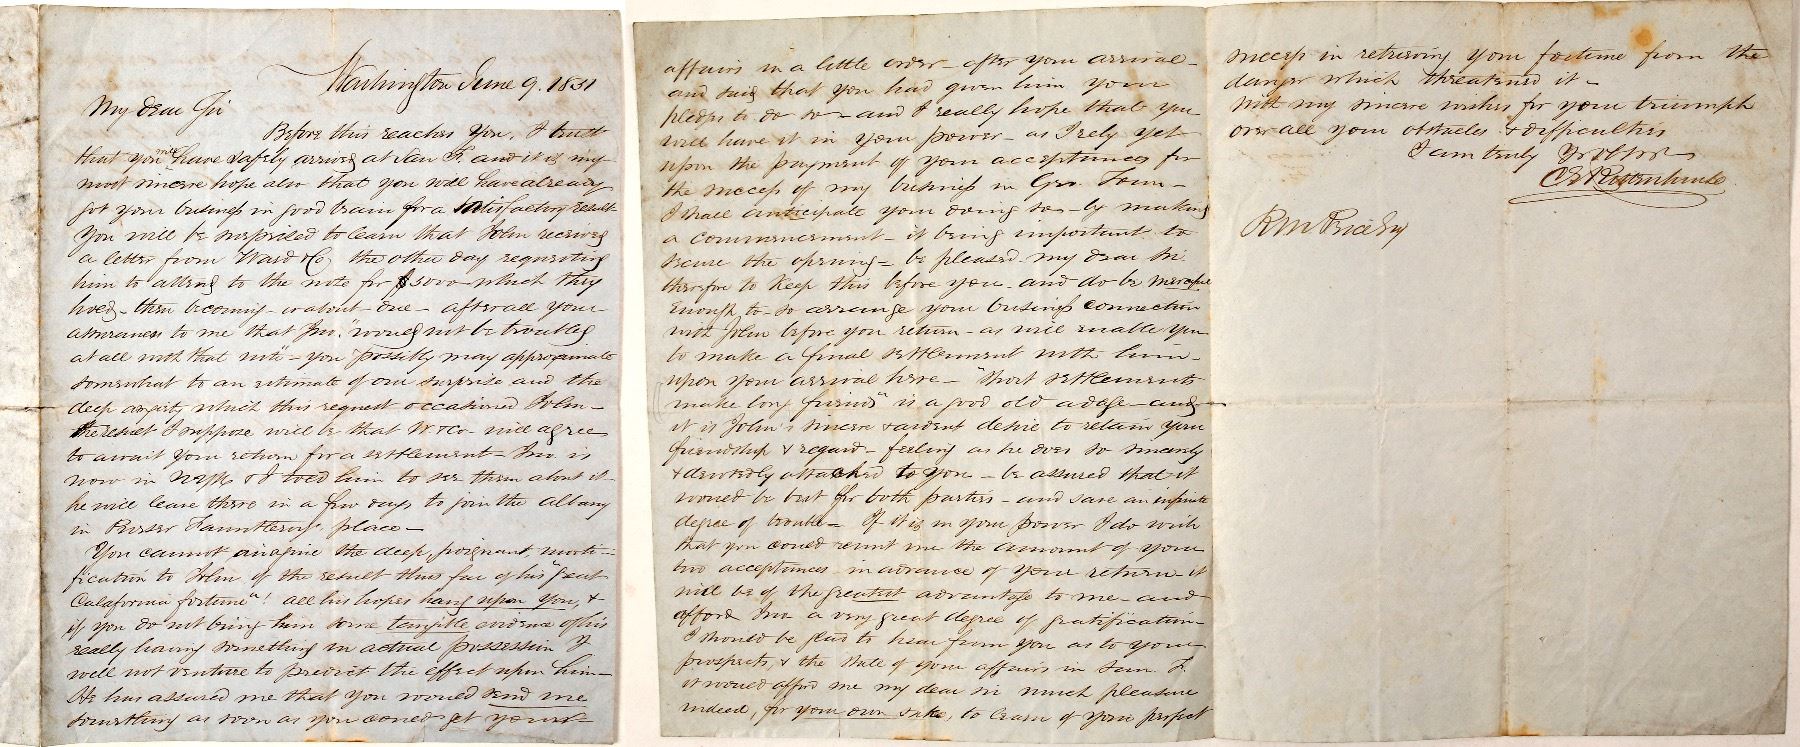 Washington June 9. 1851
My dear Sir
Before this reaches you, I trust
that you will have safely arrived at San F. and it is my
most sincere hope also that you will have already
got your business in good train for a satisfactory result
You will be surprised to learn that John received
a letter from Ward & Co the other day requesting
him to attend to the note for $5000 which they
hold – then becoming – or about – due – after all your
assurances to me that Jno. would not be troubled
at all with that note – you possibly may approximate
somewhat to an estimate of our surprise and the
deep anxiety which this request occasioned John –
the result I suppose will be that W & Co will agree
to await your return for a settlement – Jno. is
now in & I told him to see them about it –
he will leave there in a few days to join the Albany
in Purser Fauntleroy's place –
You cannot imagine the deep, poignant, morti-
fication to John of the result thus far of his "great
California fortune"! all his hopes hang upon you, &
if you do not bring him some tangible evidence of his
really having something in actual possession I
will not venture to predict the effect upon him –
He has assured me that you would send me
something as soon as you could get your
affairs in a little order – after your arrival –
and said that you had given him your
pledge to do so – and I really hope that you
will have it in your power – as I rely yet
upon the payment of your acceptances for
the success of my business in Geo. Town –
I shall anticipate your doing so – by making
a commencement – it being important to
secure the opening – be pleased my dear Sir.
therefore to keep this before you – and do be merciful
enough to – so arrange your business connection
with John before you return – as will enable you
to make a final settlement with him –
upon your arrival here – "Short settlements
make long friends" is a good old adage – and –
it is John's sincere & ardent desire to retain your
friendship & regard – feeling as he does so sincerely
& devotedly attached to you – be assured that it
would be best for both parties – and save an infinite
degree of trouble – If it is in your power I do wish
that you could remit me the amount of your
two acceptances in advance of your return – it
will be of the greatest advantage to me – and
afford Jno. a very great degree of gratification –
I should be glad to hear from you as to your
prospects, & the state of your affairs in San F.
it would afford me my dear sir much pleasure
indeed, for your own sake, to learn of your perfect
success in retrieving your fortune from the
danger which threatened it –
With my sincere wishes for your triumph
over all your obstacles & difficulties
I am truly Yr
R M Price Esq